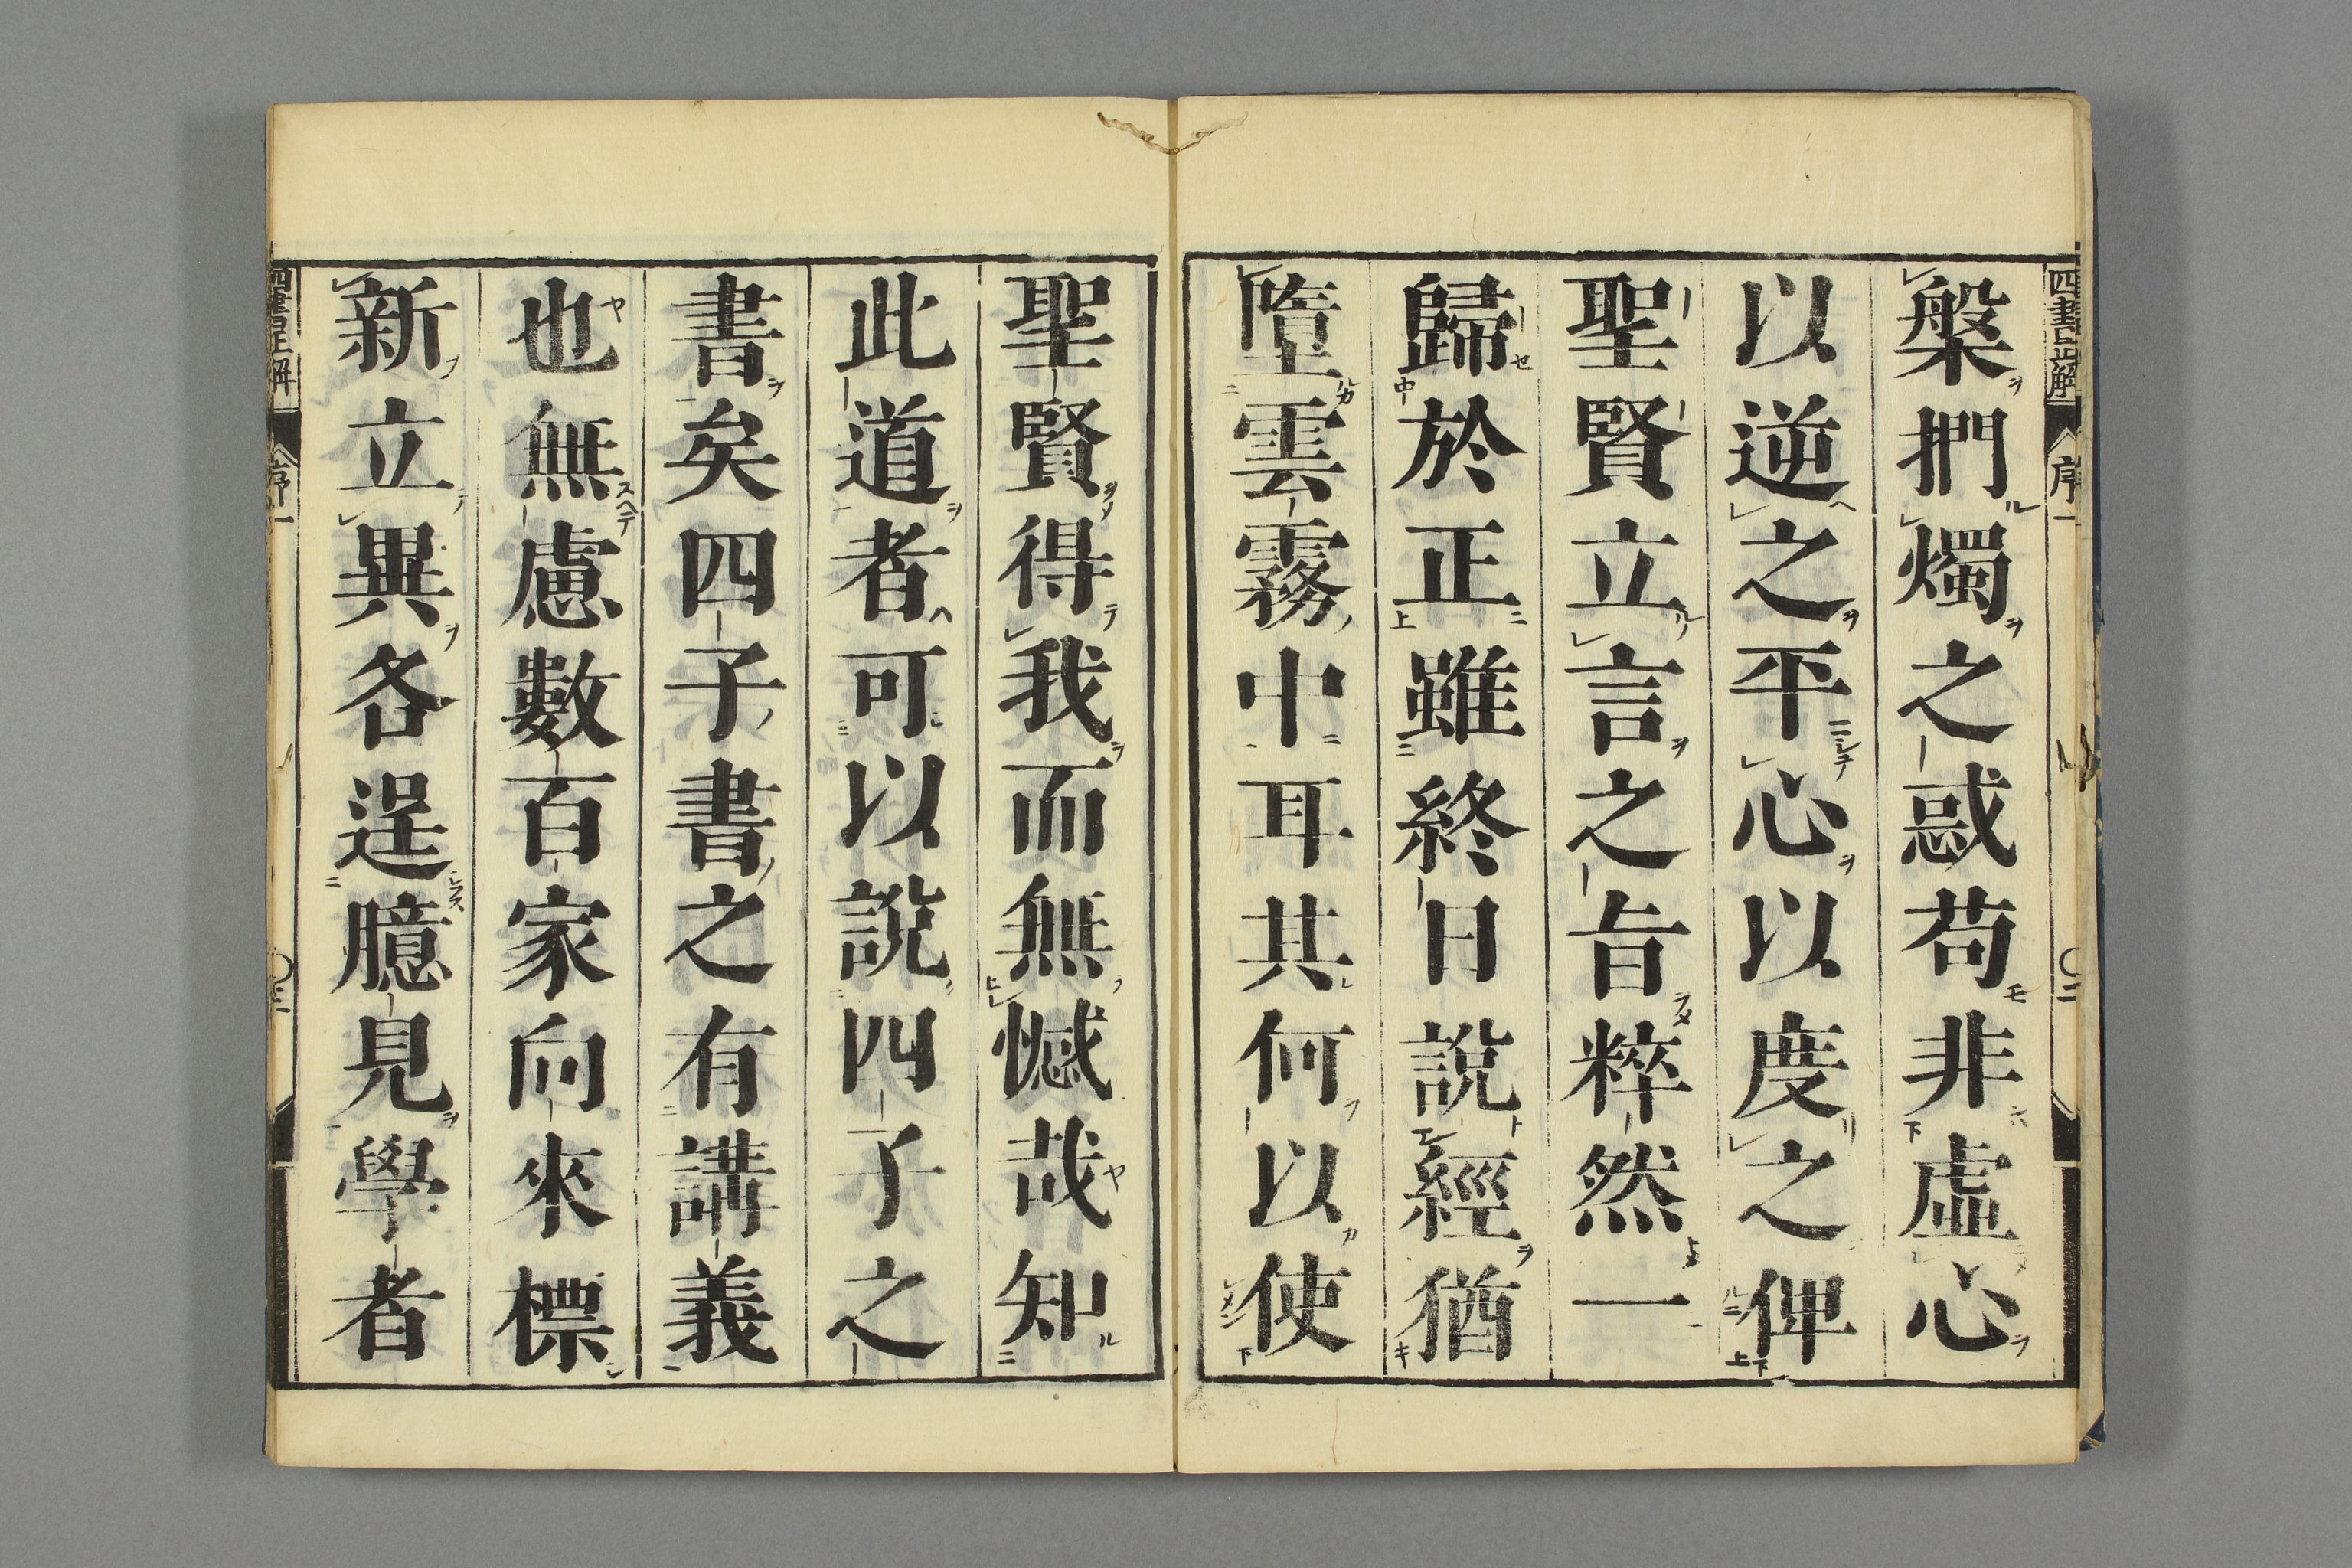 四書正解
序一
〇二
槃捫燭之惑苟非虛心
以逆之平心以度之俾
聖賢立言之旨粹然一
歸於正雖終日說經猶
墮雲霧中耳其何以使
聖賢得我而無憾哉知
此道者可以說四子之
書矣四子書之有講義
也無慮數百家向來標
新立異各逞臆見學者
四書正解
序一